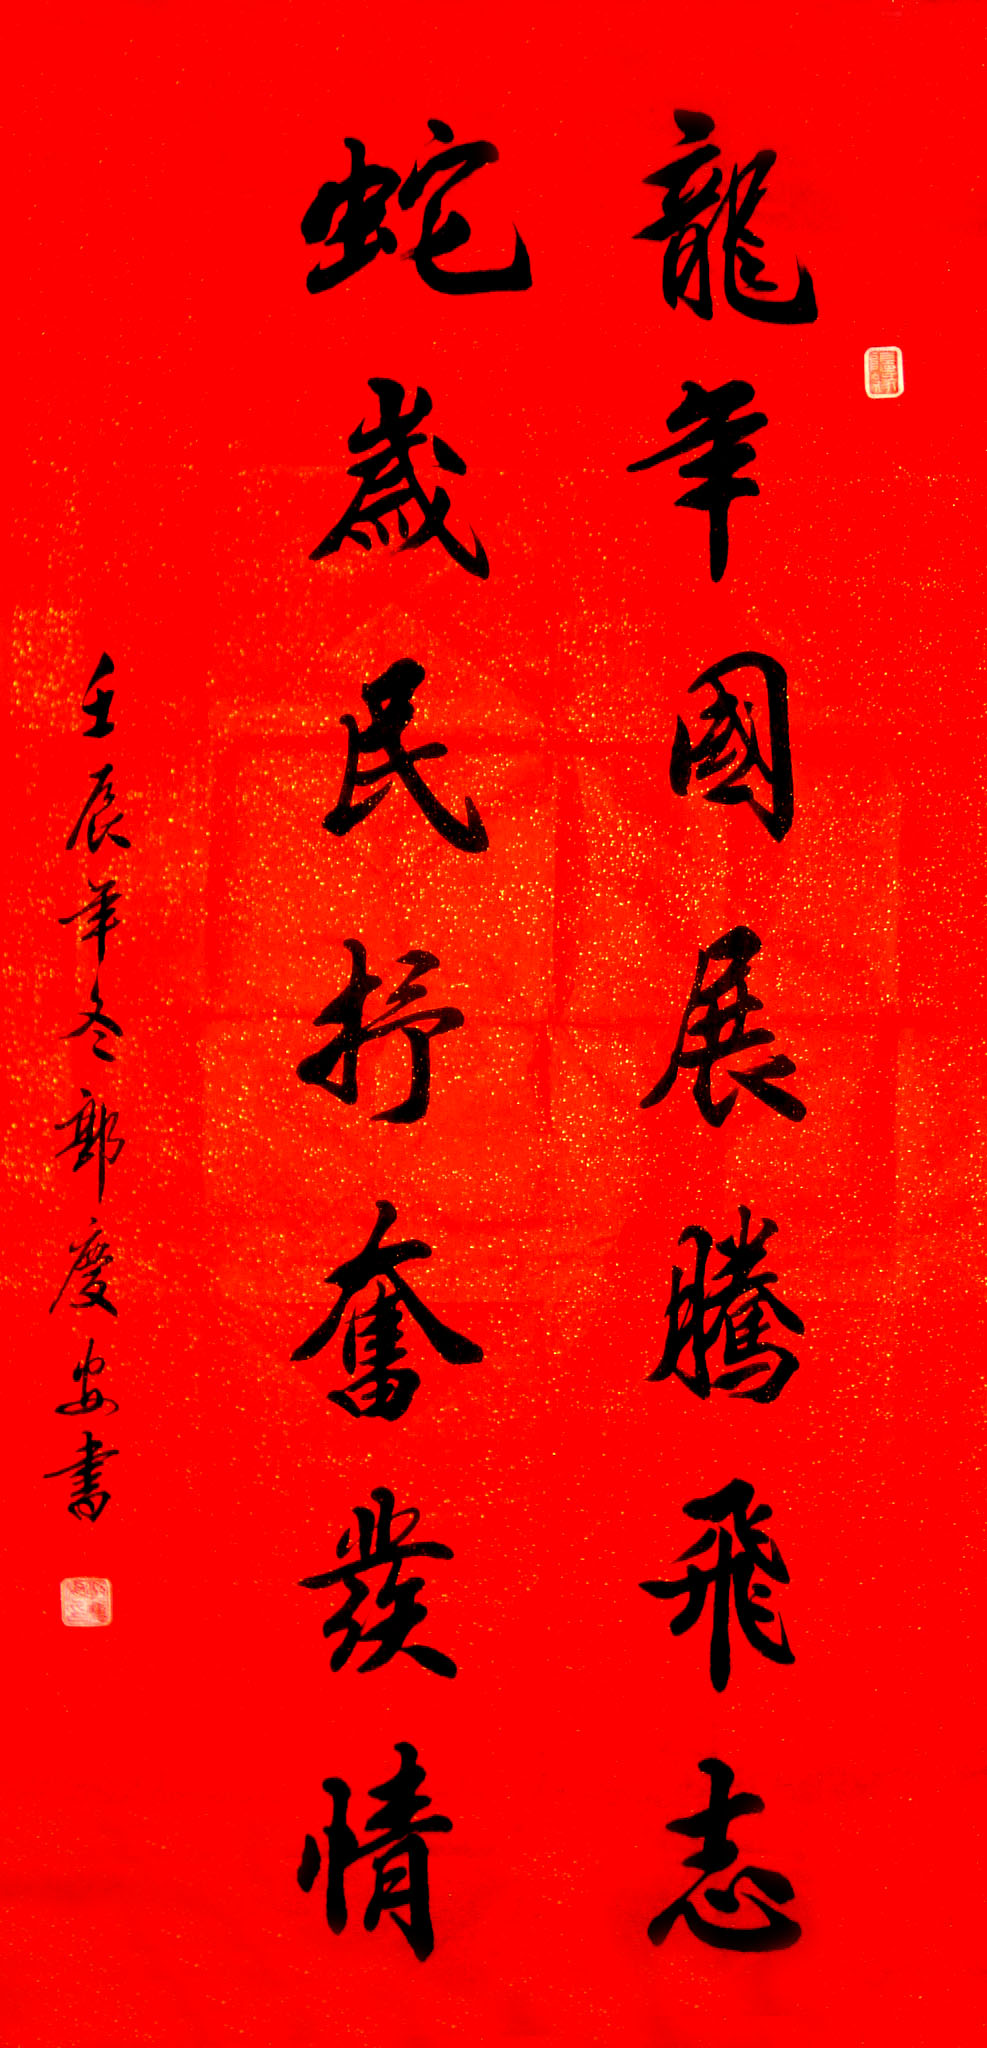 龍年國展騰飛志
蛇歲民抒奮發情
壬辰年冬郭慶安書